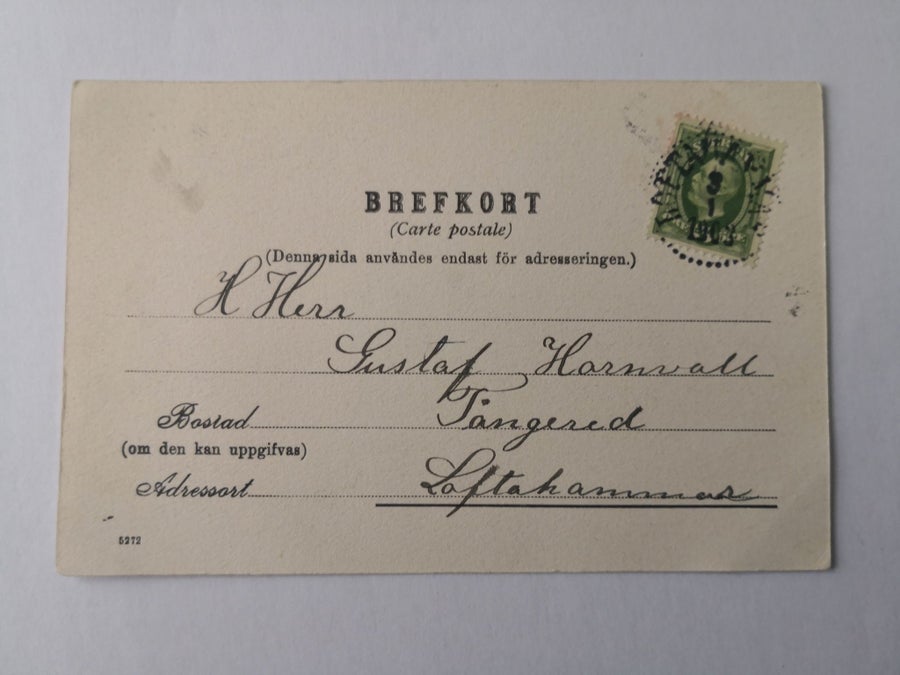 BREFKORT
(Carte postale)
(Denna sida användes endast för adresseringen.)
H Herr
Gustaf Hornwall
Bostad Tångered
(om den kan uppgifvas)
Adressort Loftahammar
5272
3
1
1903